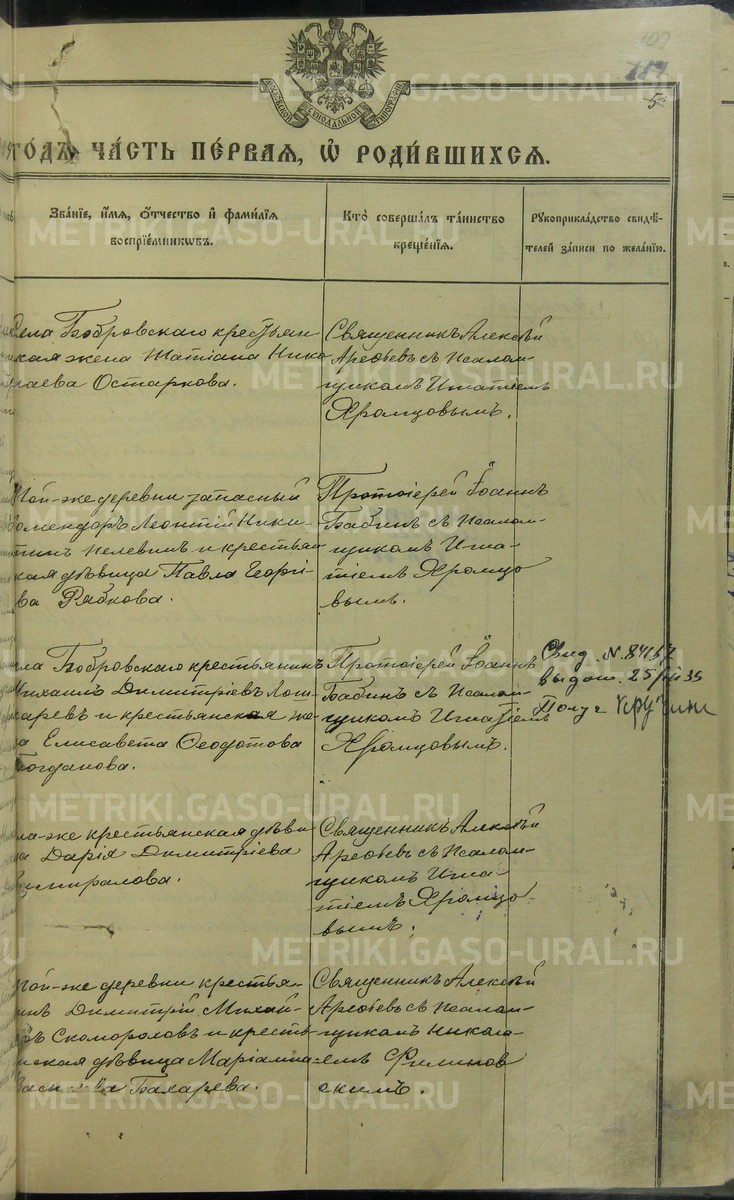 157
5
МОСКОВСКОЙ СѴНОДАЛЬНОЙ ТИПОГРАФІИ
ГОДЪ ЧА́СТЬ ПЕ́РВАЯ, Ѡ҆ РОДИ́ВШИХСЯ.
Зва́нїе, и҆́мя, ѻ҆́тчество и҆ фами́лїя
воспрїе́мниковъ.
Кто̀ соверша́лъ та́инство
креще́нїя.
Рꙋкоприкла́дство свидѣ́-
телей за́писи по жела́нїю.
Села Бобровскаго крестьян-
ская жена Татіана Нико
лаева Остаркова.
Священникъ Алексѣй
Арефьевъ съ псалом-
щикомъ Игнатіемъ
Храмцовымъ.
Той-же деревни запасный
Комендоръ Леонтій Ники-
тинъ Пелевинъ и крестьян
ская дѣвица Павла Георгі-
ева Рябкова.
Протоіерей Іоаннъ
Бабинъ съ псалом-
щикомъ Игна-
тіемъ Храмцо
вымъ.
села Бобровскаго крестьянинъ
Михаилъ Димитріевъ
и крестьянская же-
на Елисавета Ѳеодотова
Богданова.
Протоіерей Іоаннъ
Бабинъ съ псалом-
щикомъ Игнатіемъ
Храмцовымъ.
Свид. N.
выдан. 25/III 35
Получ
села-же крестьянская дѣви
ца Дарія Димитріева
Священникъ Алексѣй
Арефьевъ съ псалом-
щикомъ Игна-
тіемъ Храмцо
вымъ.
Той-же деревни крестья-
нинъ Димитрій Михай-
ловъ Скомороловъ и кресть-
янская дѣвица Маріамна
Бахарева.
Священникъ Алексѣй
Арефьевъ съ псалом-
щикомъ Никола-
емъ Филинов
скимъ.
METRIKI.GASO-URAL.RU